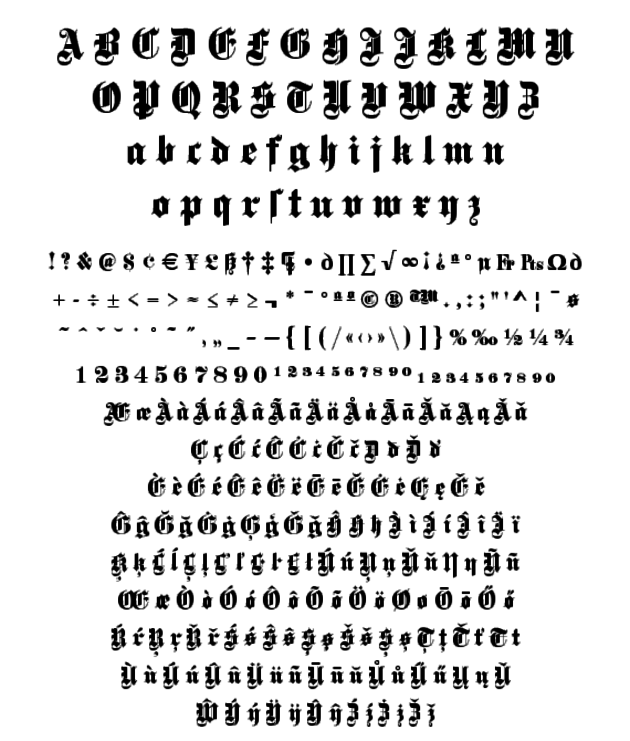 A B C D E F G H I J K L M N
O P Q R S T U V W X Y Z
a b c d e f g h i j k l m n
o p q r ſ t u v w x y z
! ? & @ $ ¢ € ¥ £ ß † ‡ ¶ • ∂ ∏ ∑ √ ∞ ¡ ¿ ª º µ Fr Pts Ω ∂
+ - ÷ ± < = > ≈ ≤ ≠ ≥ ¬ * ¯ ° ª º © ® ™ . , : ; " ' ^ ¦ ¯ ø
˜ ˆ ˇ ˘ ˙ ˚ ˜ ˝ ‚ „ _ - – { [ ( / « ‹ › » \ ) ] } % ‰ ½ ¼ ¾
1 2 3 4 5 6 7 8 9 0 ¹ ² ³ ⁴ ⁵ ⁶ ⁷ ⁸ ⁹ ⁰ ₁ ₂ ₃ ₄ ₅ ₆ ₇ ₈ ₉ ₀
Æ æ À à Á á Â â Ã ã Ä ä Å å Ā ā Ă ă Ą ą Ǎ ǎ
Ç ç Ć ć Ĉ Ċ ċ Č č Đ ð Ď ď
È è É é Ê ê Ë ë Ē ē Ĕ Ė ė Ę ę Ě ě
Ĝ ĝ Ğ ğ Ġ ġ Ģ ģ Ǧ ǧ Ĥ Ħ ħ Ì ì Í í Î î Ï ï
Ķ ķ Ĺ ĺ Ļ ļ Ľ ľ Ŀ ŀ Ł ł Ń ń Ņ ņ Ň ň Ŋ ŋ Ñ ñ
Œ œ Ò ò Ó ó Ô ô Õ õ Ö ö Ø ø Ō ō Ő ő
Ŕ ŕ Ŗ ŗ Ř ř Ś ś Ŝ ŝ Ş ş Š š Ș ș Ţ ţ Ť ť Ŧ ŧ
Ù ù Ú ú Û û Ü ü ũ Ū ū ŭ Ů ů Ű ű Ų ų Ǔ
Ŵ Ý ý Ÿ ÿ Ŷ ŷ Ź ź Ż ż Ž ž